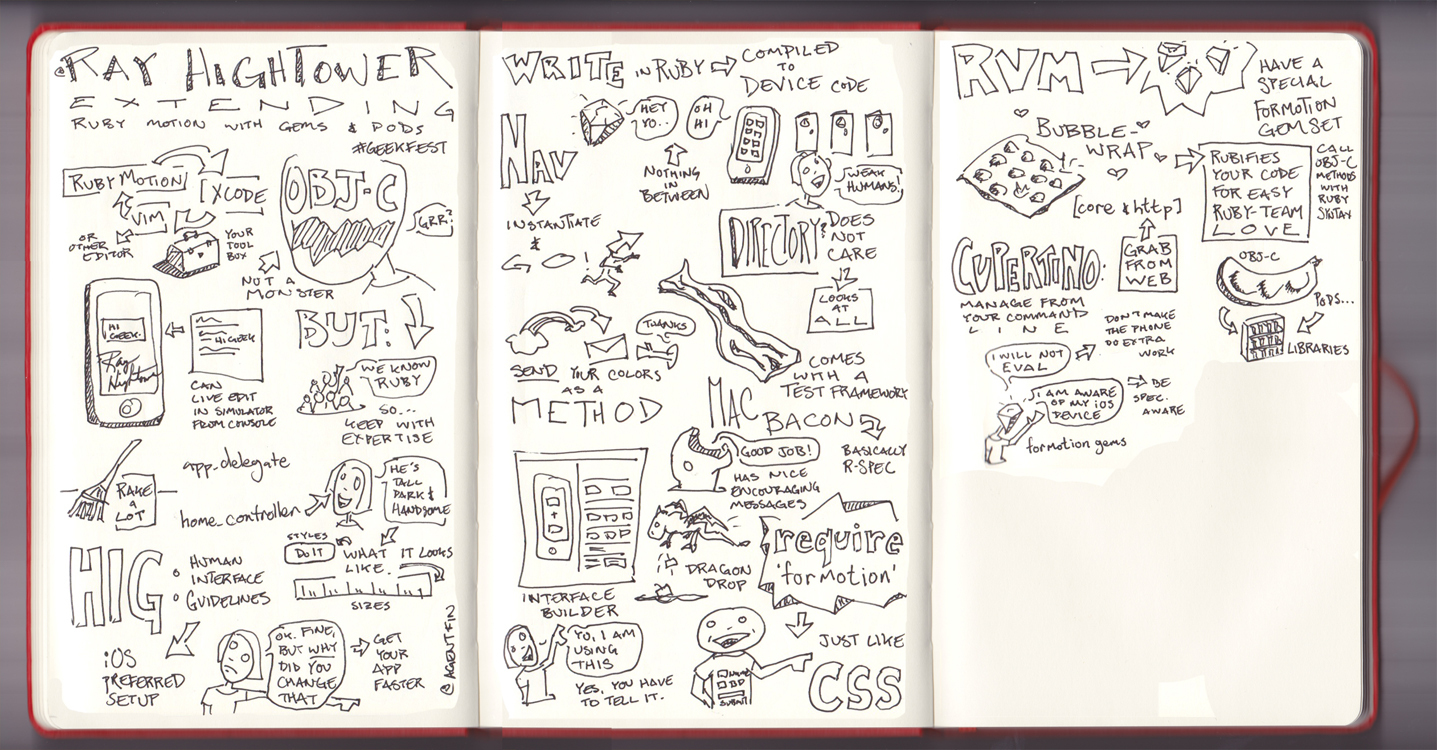 @RAY HIGHTOWER
EXTENDING
RUBY MOTION WITH GEMS & PODS
#GEEKFEST
RUBYMOTION
XCODE
VIM
OR
OTHER
EDITOR
YOUR
TOOL
BOX
OBJ-C
GRR?
NOT A
MONSTER
HI
GEEK.
Ray
Hightower
HI GEEK
CAN
LIVE EDIT
IN SIMULATOR
FROM CONSOLE
BUT:
WE KNOW
RUBY
SO...
KEEP WITH
EXPERTISE
RAKE
A
LOT
app_delegate
home_controller
HE'S
TALL
DARK &
HANDSOME
STYLES
DO IT
WHAT IT LOOKS
LIKE.
SIZES
HIG:
HUMAN
INTERFACE
GUIDELINES
iOS
PREFERRED
SETUP
OK. FINE,
BUT WHY
DID YOU
CHANGE
THAT
GET
YOUR
APP
FASTER
@AGENTFIN
WRITE IN RUBY
COMPILED
TO
DEVICE CODE
HEY
YO..
OH
HI
NOTHING
IN
BETWEEN
NAV
INSTANTIATE
&
GO!
WEAK
HUMANS!
DIRECTORY:
DOES
NOT
CARE
LOOKS
AT
ALL
THANKS
SEND YOUR COLORS
AS A
METHOD
COMES
WITH A
TEST FRAMEWORK
MAC
BACON
BASICALLY
R-SPEC
GOOD JOB!
HAS NICE
ENCOURAGING
MESSAGES
INTERFACE
BUILDER
DRAGON
DROP
require
'formotion'
YO, I AM
USING
THIS
YES, YOU HAVE
TO TELL IT.
SUBMIT
JUST LIKE
CSS
RVM
HAVE A
SPECIAL
FORMOTION
GEMSET
BUBBLE-
WRAP
[core & http]
RUBIFIES
YOUR CODE
FOR EASY
RUBY-TEAM
LOVE
CALL
OBJ-C
METHODS
WITH
RUBY
SNTAX
GRAB
FROM
WEB
CUPERTINO:
MANAGE FROM
YOUR COMMAND
LINE
OBJ-C
PODS...
LIBRARIES
I WILL NOT
EVAL
DON'T MAKE
THE PHONE
DO EXTRA
WORK
I AM AWARE
OF MY iOS
DEVICE
BE
SPEC.
AWARE
formotion gems